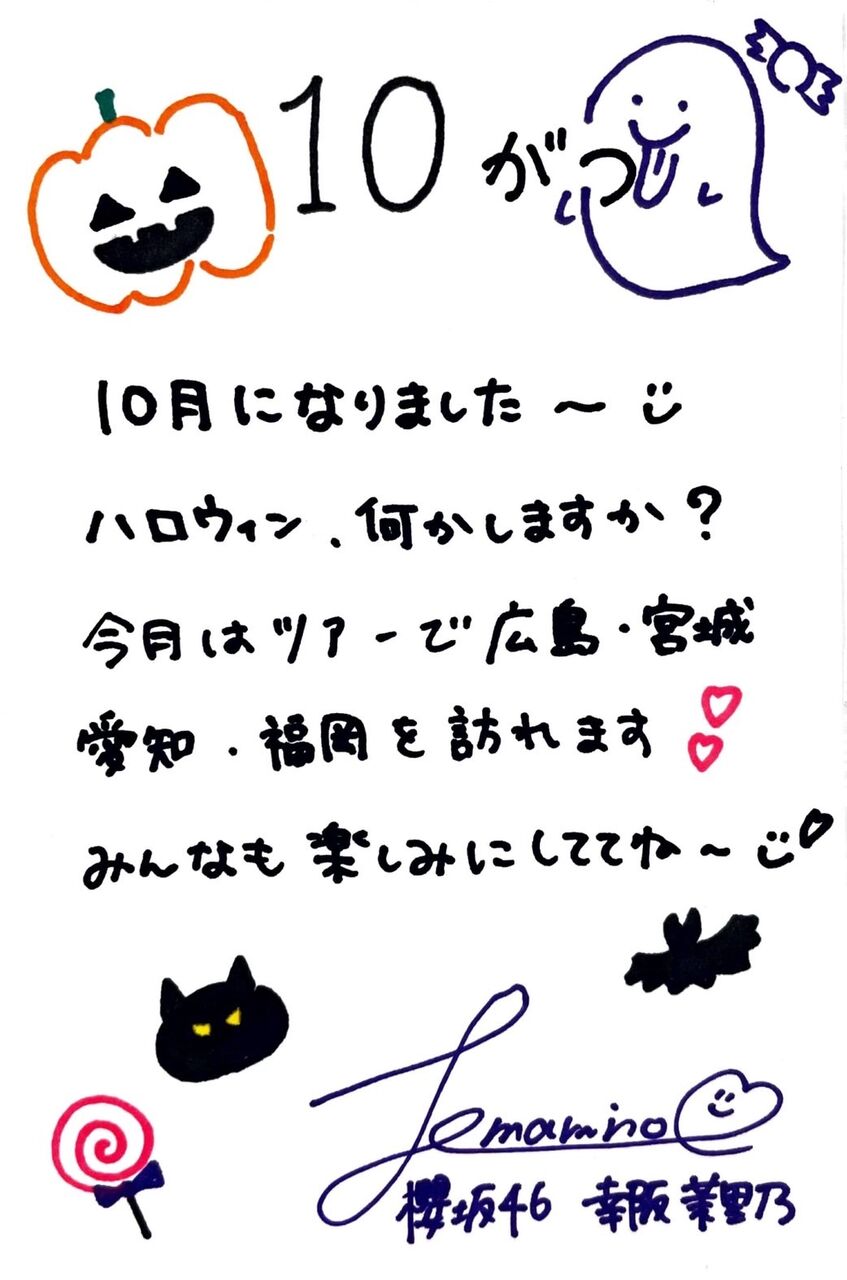 10がつ
10月になりました〜
ハロウィン、何かしますか？
今月はツアーで広島・宮城
愛知・福岡を訪れます
みんなも楽しみにしててね〜
marino
櫻坂46 幸阪茉里乃